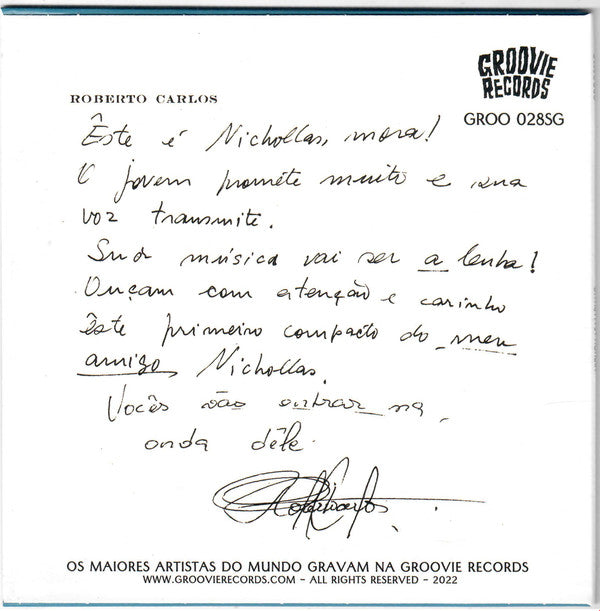 GROOVIE
RECORDS
ROBERTO CARLOS
GROO 028SG
Êste é Nichollas, mora!
O jovem promete muito e sua
voz transmite.
Sua música vai ser a lenha!
Ouçam com atenção e carinho
êste primeiro compacto do meu
amigo, Nichollas.
Vocês vão entrar na
onda dêle.
OS MAIORES ARTISTAS DO MUNDO GRAVAM NA GROOVIE RECORDS
WWW.GROOVIERECORDS.COM - ALL RIGHTS RESERVED - 2022